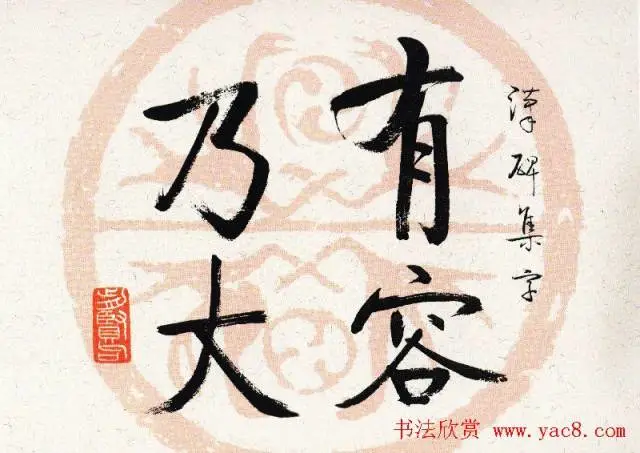 汉碑集字
有容
乃大
书法欣赏 www.yac8.com